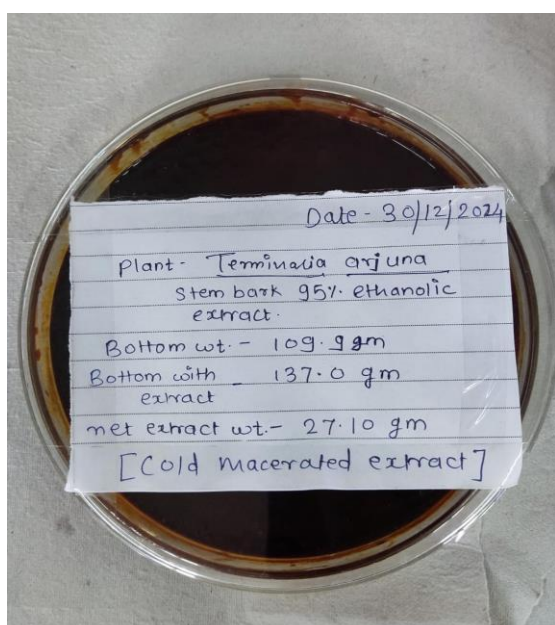 Date - 30/12/2024
Plant - Terminalia arjuna
Stem bark 95% ethanolic
extract.
Bottom wt. - 109.9 gm
Bottom with - 137.0 gm
extract
net extract wt. - 27.10 gm
[Cold macerated extract]